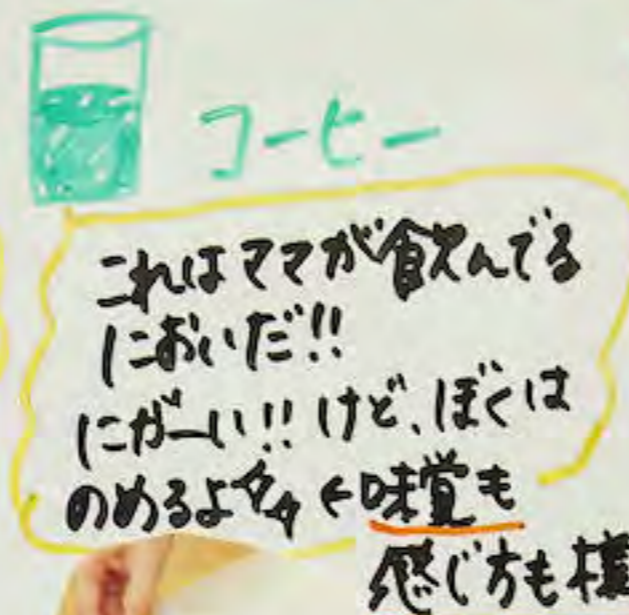 コーヒー
これはママが飲んでる
においだ!!
にがーい!! けど、ぼくは
のめるよ ←味覚も
感じ方も様